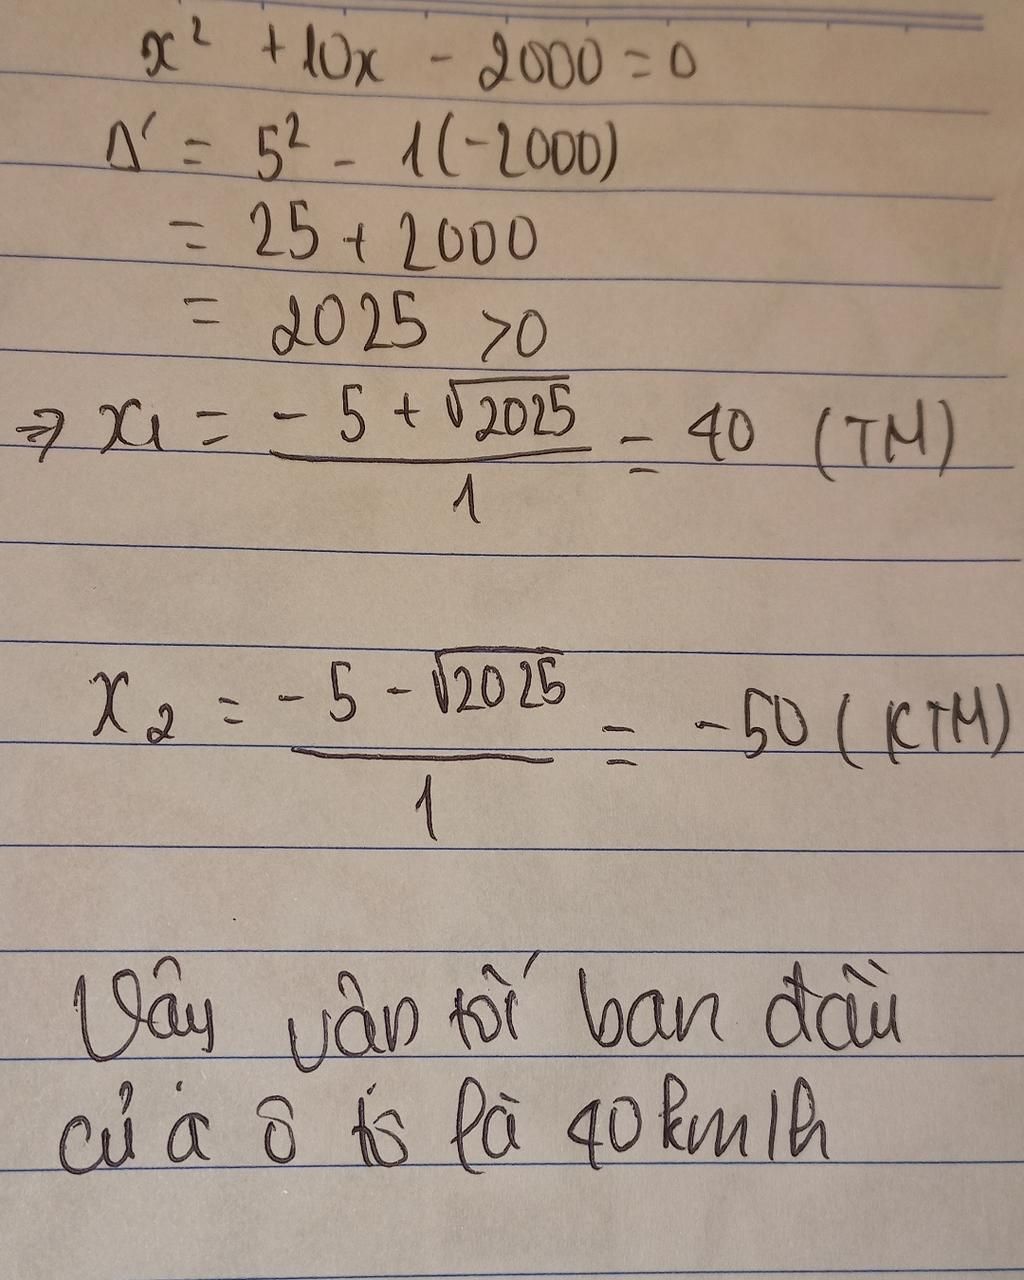 x² + 10x - 2000 = 0
Δ' = 5² - 1(-2000)
= 25 + 2000
= 2025 > 0
⇒ x₁ = (-5 + √2025)/1 = 40 (TM)
x₂ = (-5 - √2025)/1 = -50 (KTM)
Vậy vận tốc ban đầu
của ô tô là 40km/h